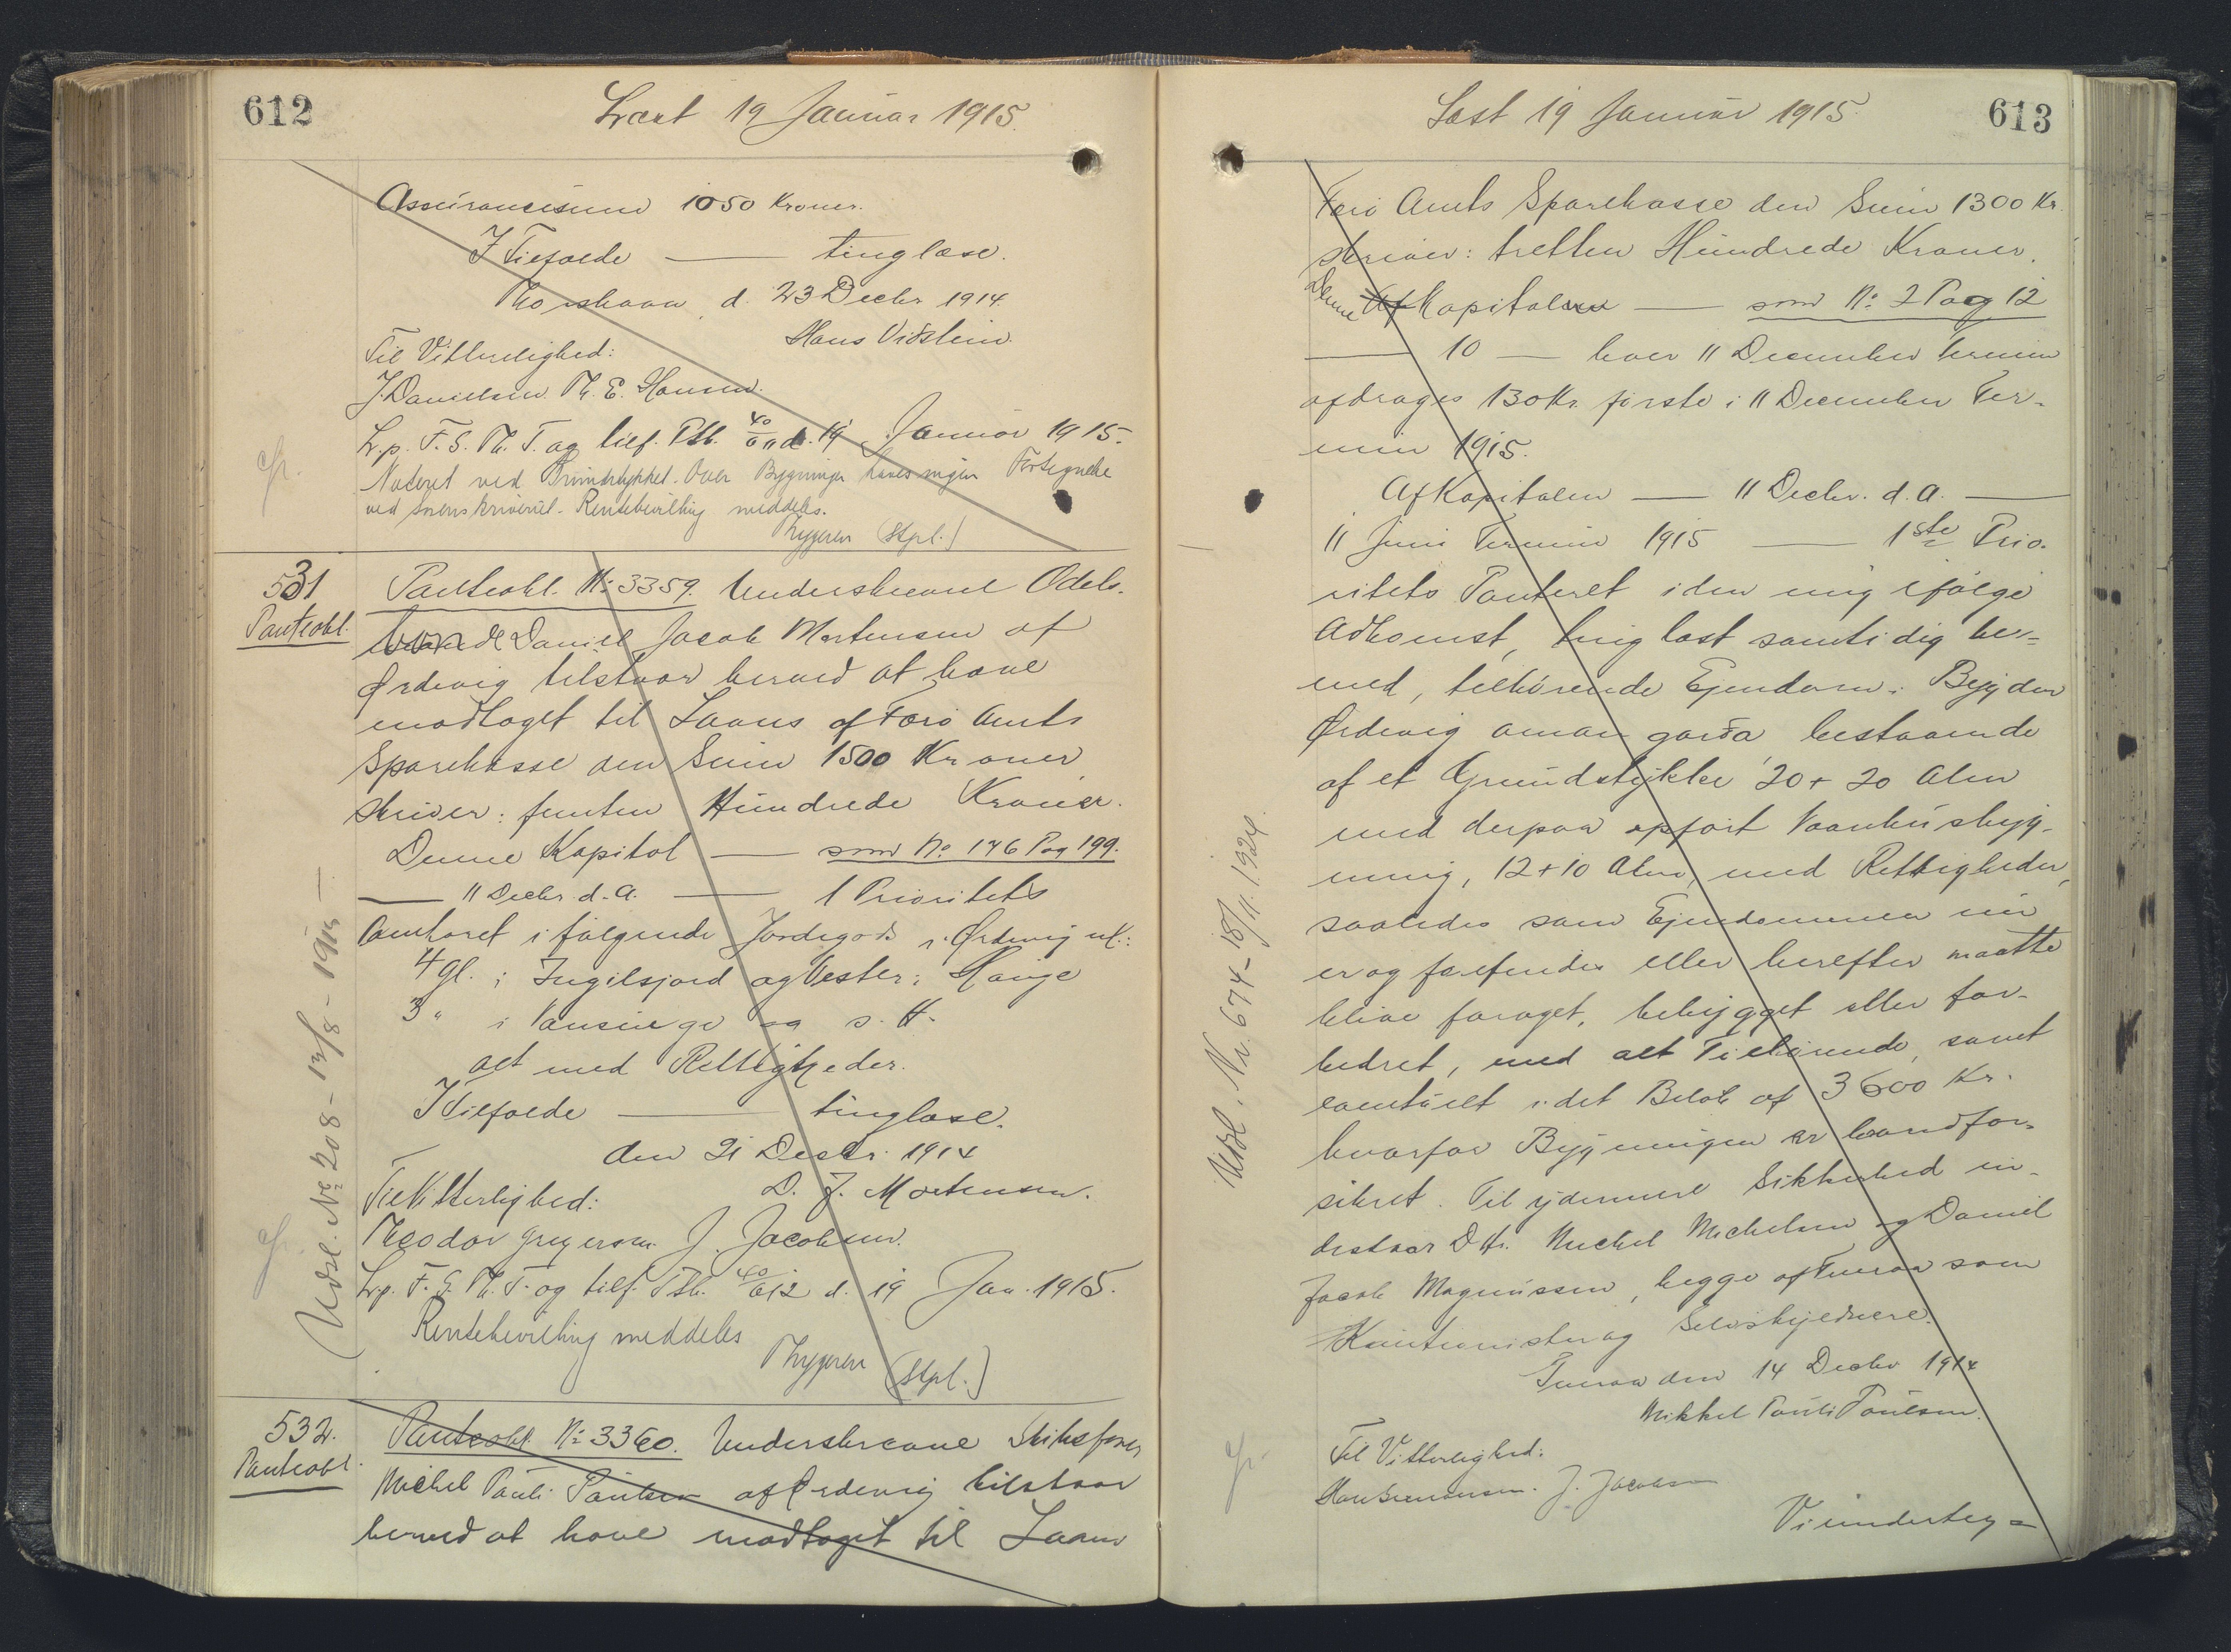 612
Læst 19 Januar 1915.
Assurancesum 1050 Kroner.
I Tilfælde — tinglæse.
Thorshavn, d. 23 Decbr 1914.
Hans Vidstein.
Til Vitterlighed:
J. Danielsen. Th. E. Hansen.
L. p. F. S. Th. T. og tilf. Ptb. 40/611 d. 19 Januar 1915.
cfr.
Noteret ved Grundstykket. Over Bygninger haves ingen Fortegnelse
ved Sorenskriveriet. Rentebevilling meddeles.
Thygesen (Stpl.)
531
Panteobl.
Panteobl. No 3359. Underskrevne Odels-
bonde Daniel Jacob Mortensen af
Ørdevig tilstaar herved at have
modtaget til Laans af Færø Amts
Sparekasse den Sum 1500 Kroner,
skriver: femten Hundrede Kroner.
Denne Kapital — som No 146 Pag 199.
— 11 Decbr d. A. — 1 Prioritets
Panteret i følgende Jordegods i Ørdevig nl.:
4 gl. i Ingilsjord og Vester i Hauge
3 " i og s. H.
alt med Rettigheder.
I Tilfælde — tinglæse.
den 21 Decbr. 1914
D. J. Mortensen.
Til Vitterlighed:
Theodor Gregersen. J. Jacobsen.
L. p. F. S. Th. T. og tilf. Ptb. 40/612 d. 19 Jan. 1915.
cfr.
Rentebevilling meddeles
Thygesen (Stpl.)
Udsl. No 208 - 12/8 - 1915 —
532.
Panteobl.
Panteobl. No 3360. Underskrevne Skibsfører
Michel Pauli Poulsen af Ørdevig tilstaar
herved at have modtaget til Laans
613
Læst 19 Januar 1915.
Færø Amts Sparekasse den Sum 1300 Kr.
skriver: tretten Hundrede Kroner.
Denne Af Kapitalen — som No 2 Pag 12
— 10 — hver 11 December Termin
afdrages 130 Kr. første i 11 December Ter-
min 1915.
Af Kapitalen — 11 Decbr. d. A. —
11 Juni Termin 1915 — 1ste Prio-
ritets Panteret i den mig ifølge
Adkomst, tinglæst samtidig her-
med, tilhørende Ejendom i Bygden
Ørdevig garða, bestaaende
af et Grundstykke 20 + 20 Alen
med derpaa opført Vaanhusbyg-
ning, 12 + 10 Alen, med Rettigheder,
saaledes som Ejendommen nu
er og forefindes eller herefter maatte
blive forøget, bebygget eller for-
bedret, med alt Tilhørende, samt
eventuelt i det Beløb af 3600 Kr.
hvorfor Bygningen er brandfor-
sikret. Til ydermere Sikkerhed in-
destaar DHr. Michel Michelsen og Daniel
Jacob Magnussen, begge af Tveraa som
Kautionister og Selvskyldnere.
Tveraa den 14 Decbr 1914
Mikkel Pauli Poulsen.
Til Vitterlighed:
cfr.
J. Jacobsen
Vi underteg=
Udsl. Nr. 674 - 18/11. 1924.